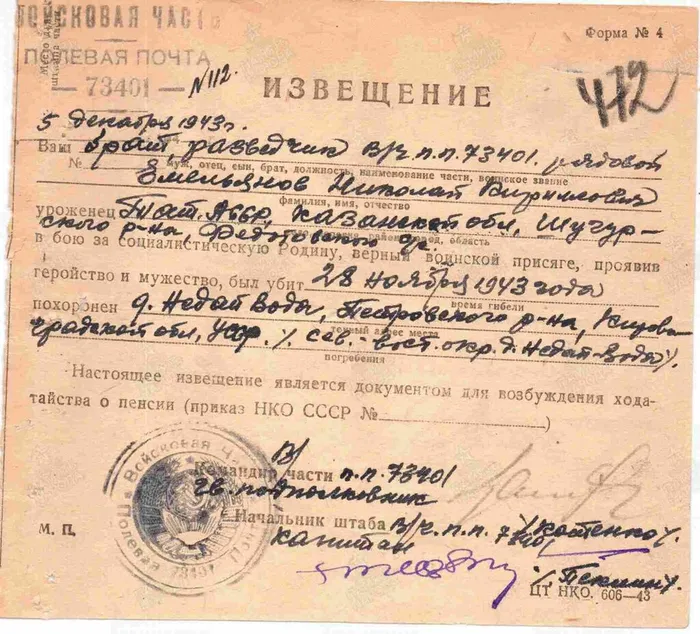 ВОЙСКОВАЯ ЧАСТЬ
ПОЛЕВАЯ ПОЧТА
— 73401 —
N112.
Форма № 4
472
ИЗВЕЩЕНИЕ
5 декабря 1943 г.
Ваш брат, разведчик В/ч п.п. 73401. рядовой
№ муж, отец, сын, брат, должность, наименование части, воинское звание
Емельянов Николай Кириллович
фамилия, имя, отчество
уроженец Тат. Абвр, Казанской обл, Шучур-
ского р-на, Федотовской
область
в бою за социалистическую Родину, верный воинской присяге, проявив
геройство и мужество, был убит 28 ноября 1943 года
время гибели
похоронен д. Недай Вода, Петровского р-на, Кирово-
градской обл, Усср. / сев.-вост. окр. д. Недай-Вода/.
точный адрес места
погребения
Настоящее извещение является документом для возбуждения хода-
тайства о пенсии (приказ НКО СССР №)
В/
Командир части п.п. 73401
гв. подполковник
/Костенко/.
Начальник штаба В/ч. п.п. 73401
капитан
/Пеклин/.
М. П.
Войсковая Часть
Полевая Почта 73401
ЦТ НКО. 606—43